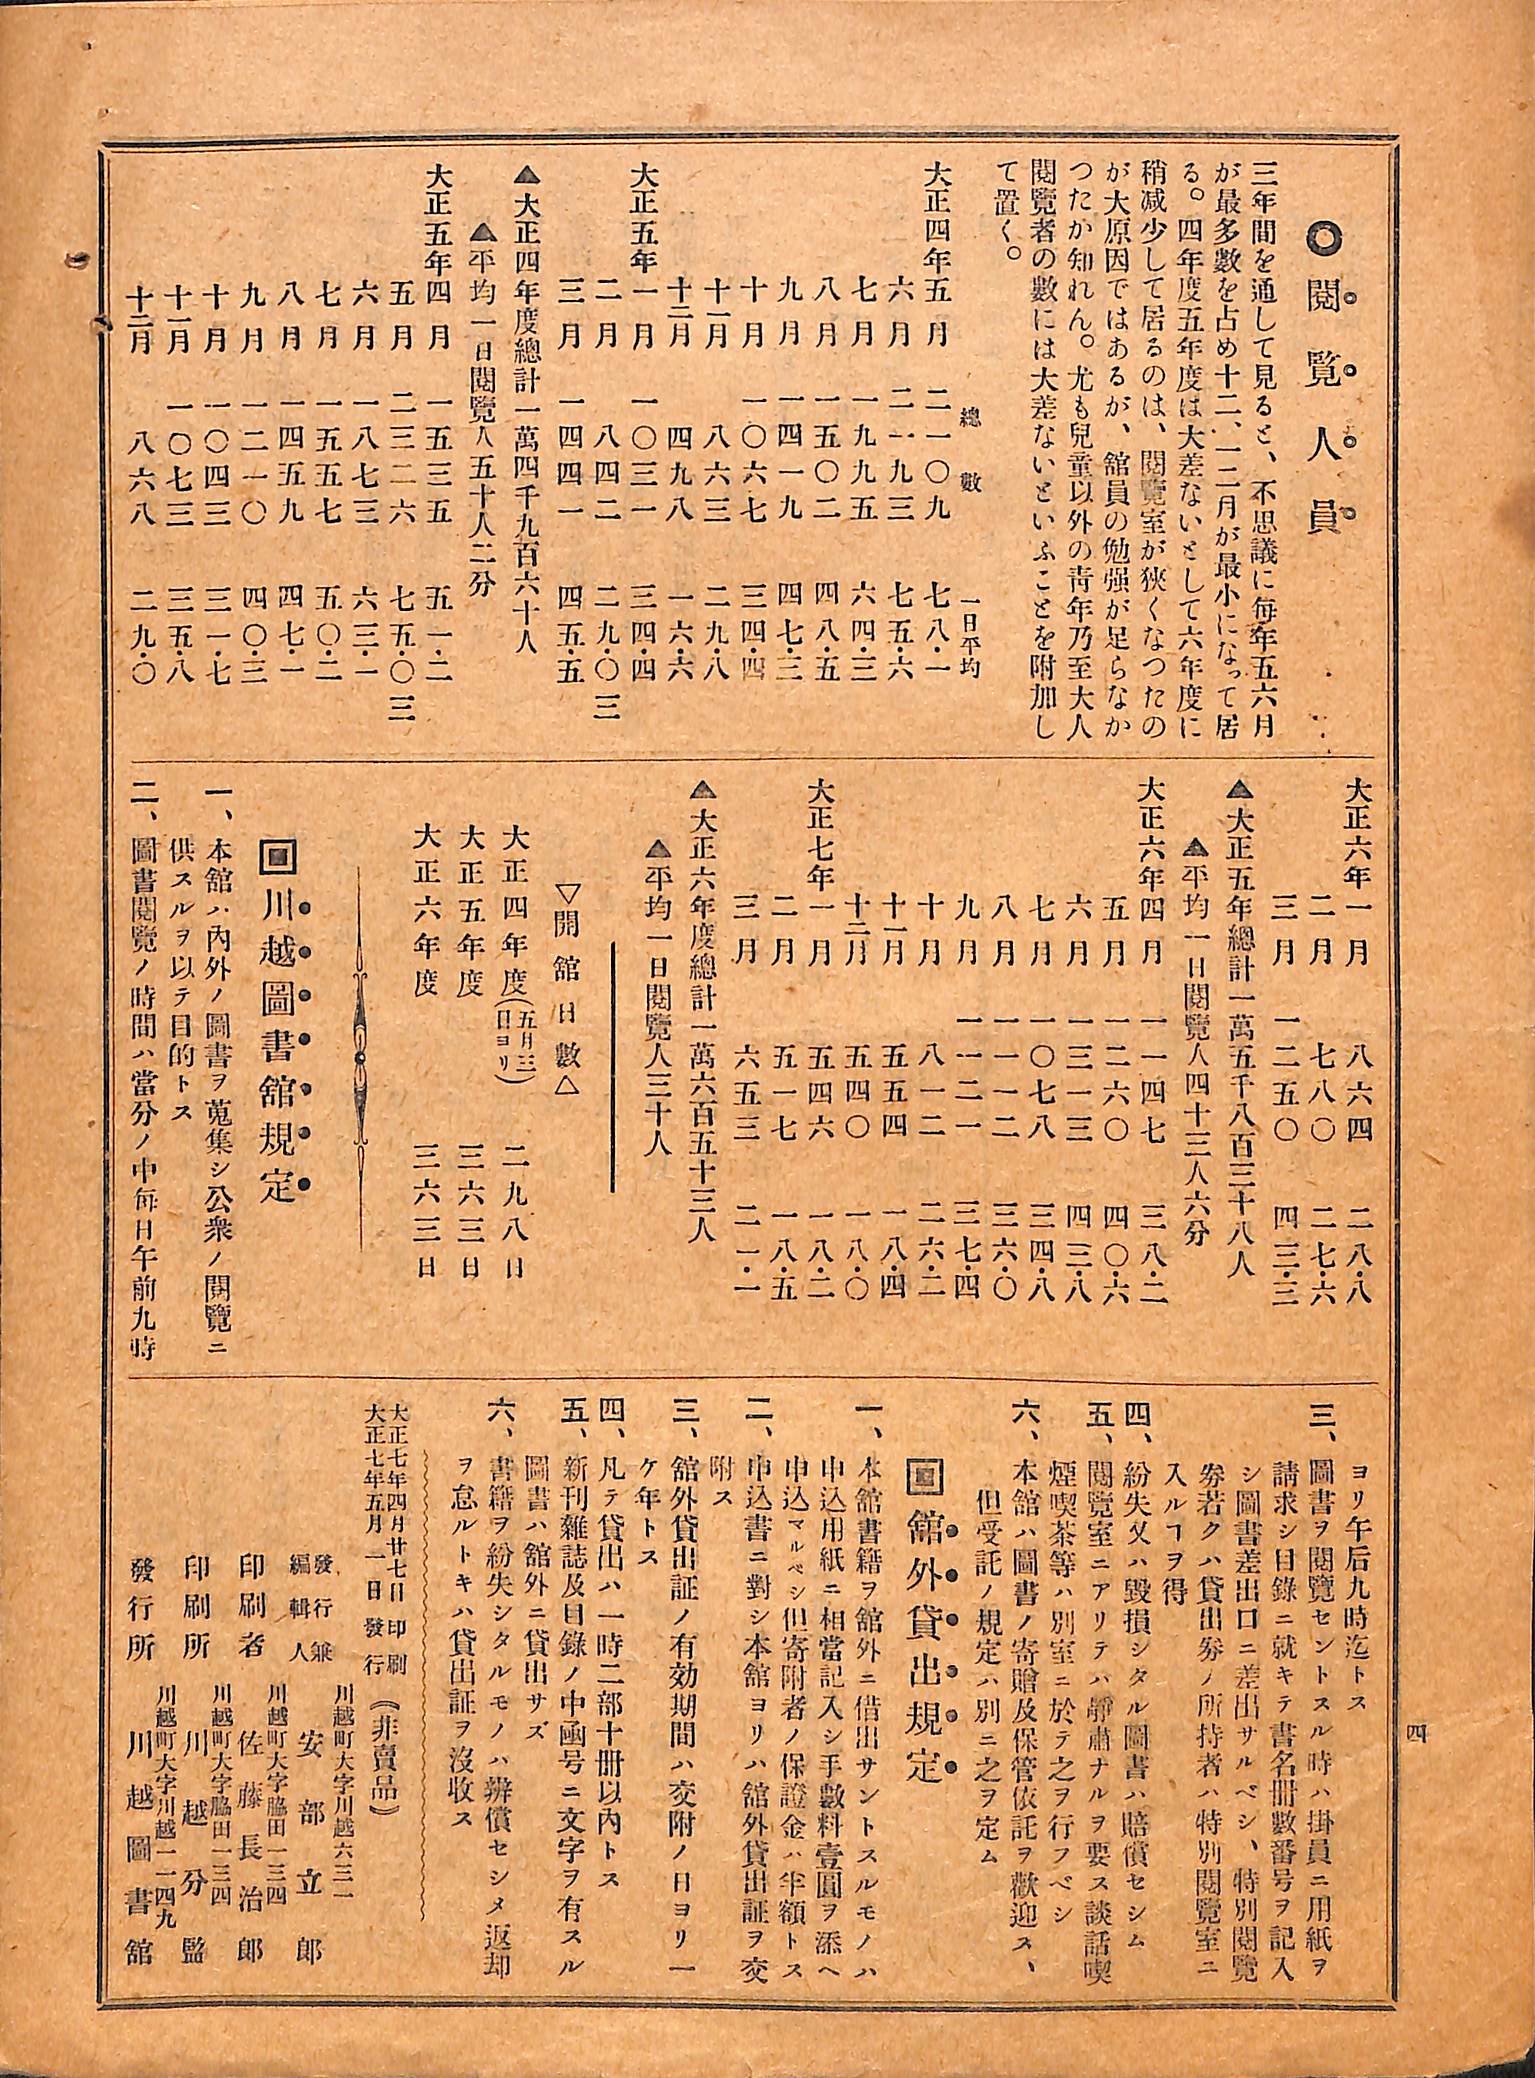 ◎閲覧人員
三年間を通して見ると、不思議に毎年五六月
が最多數を占め十二、一二月が最小になって居
る。四年度五年度は大差ないとして六年度に
稍減少して居るのは、閲覽室が狹くなつたの
が大原因ではあるが、舘員の勉强が足らなか
つたか知れん。尤も兒童以外の靑年乃至大人
閲覽者の數には大差ないといふことを附加し
て置く。
總數 一日平均
大正四年五月 二一〇九 七八・一
六月 二一九三 七五・六
七月 一九九五 六四・三
八月 一五〇二 四八・五
九月 一四一九 四七・三
十月 一〇六七 三四・四
十一月 八六三 二九・八
十二月 四九八 一六・六
大正五年一月 一〇三一 三四・四
二月 八四二 二九・〇三
三月 一四四一 四五・五
▲大正四年度總計一萬四千九百六十人
▲平均一日閲覽人五十人二分
大正五年四月 一五三五 五一・二
五月 二三二六 七五・〇三
六月 一八七三 六三・一
七月 一五五七 五〇・二
八月 一四五九 四七・一
九月 一二一〇 四〇・三
十月 一〇四三 三一・七
十一月 一〇七三 三五・八
十二月 八六八 二九・〇
大正六年一月 八六四 二八・八
二月 七八〇 二七・六
三月 一二五〇 四三・三
▲大正五年總計一萬五千八百三十八人
▲平均一日閲覽人四十三人六分
大正六年四月 一一四七 三八・二
五月 一二六〇 四〇・六
六月 一三一三 四三・八
七月 一〇七八 三四・八
八月 一一一二 三六・〇
九月 一一二一 三七・四
十月 八一二 二六・二
十一月 五五四 一八・四
十二月 五四〇 一八・〇
大正七年一月 五四六 一八・二
二月 五一七 一八・五
三月 六五三 二一・一
▲大正六年度總計一萬六百五十三人
▲平均一日閲覽人三十人
▽開舘日數△
大正四年度(五月三日ヨリ) 二九八日
大正五年度 三六三日
大正六年度 三六三日
回川越圖書舘規定
一、本舘ハ內外ノ圖書ヲ蒐集シ公衆ノ閲覽ニ
供スルヲ以テ目的トス
二、圖書閲覽ノ時間ハ當分ノ中每日午前九時
ヨリ午后九時迄トス
三、圖書ヲ閲覽セントスル時ハ掛員ニ用紙ヲ
請求シ目錄ニ就キテ書名冊數番号ヲ記入
シ圖書差出口ニ差出サルベシ、特別閲覽
劵若クハ貸出劵ノ所持者ハ特別閲覽室ニ
入ルヿヲ得
四、紛失又ハ毀損シタル圖書ハ賠償セシム
五、閲覽室ニアリテハ靜肅ナルヲ要ス談話喫
煙喫茶等ハ別室ニ於テ之ヲ行フベシ
六、本舘ハ圖書ノ寄贈及保管依託ヲ歡迎ス、
但受託ノ規定ハ別ニ之ヲ定ム
回舘外貸出規定
一、本舘書籍ヲ舘外ニ借出サントスルモノハ
申込用紙ニ相當記入シ手數料壹圓ヲ添ヘ
申込マルベシ但寄附者ノ保證金ハ半額トス
二、申込書ニ對シ本舘ヨリハ舘外貸出証ヲ交
附ス
三、舘外貸出証ノ有効期間ハ交附ノ日ヨリ一
ケ年トス
四、凡テ貸出ハ一時二部十冊以內トス
五、新刊雜誌及目錄ノ中凾号ニ文字ヲ有スル
圖書ハ舘外ニ貸出サズ
六、書籍ヲ紛失シタルモノハ辨償セシメ返却
ヲ怠ルトキハ貸出証ヲ沒收ス
大正七年四月廿七日印刷
大正七年五月一日發行
(非賣品)
川越町大字川越六三一
發行兼編輯人 安部立郎
川越町大字脇田一三四
印刷者 佐藤長治郎
川越町大字脇田一三四
印刷所 川越分監
川越町大字川越一二四九
發行所 川越圖書舘
四